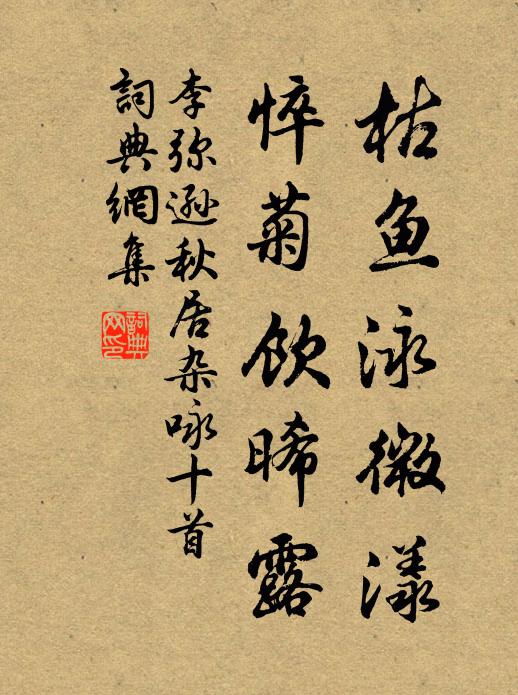 枯鱼泳微漾
悴菊饮晞露
李弥逊秋居杂咏十首
詞典網集
詞典网印